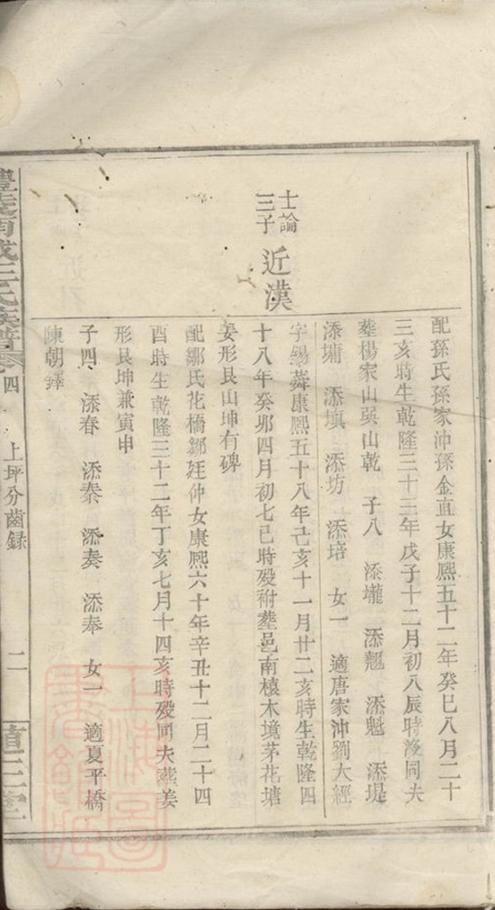 配孫氏孫家沖孫金直女康熙五十二年癸巳八月二十
三亥時生乾隆三十三年戊子十二月初八辰時歿同夫
葬楊家山巽山乾 子八 添壠 添翹 添魁 添堤
添墉 添塡 添坊 添培 女一 適唐家沖劉大經
士論
三子
近漢
字錫蕣康熙五十八年己亥十一月廿二亥時生乾隆四
十八年癸卯四月初七巳時歿祔葬邑南檺木境茅花塘
姜形艮山坤有碑
配鄒氏花橋鄒廷仲女康熙六十年辛丑十二月二十四
酉時生乾隆三十二年丁亥七月十四亥時歿同夫葬姜
形艮坤兼寅申
子四 添春 添泰 添奏 添奉 女一 適夏平橋
陳朝鐸
四 上坪分齒錄 二